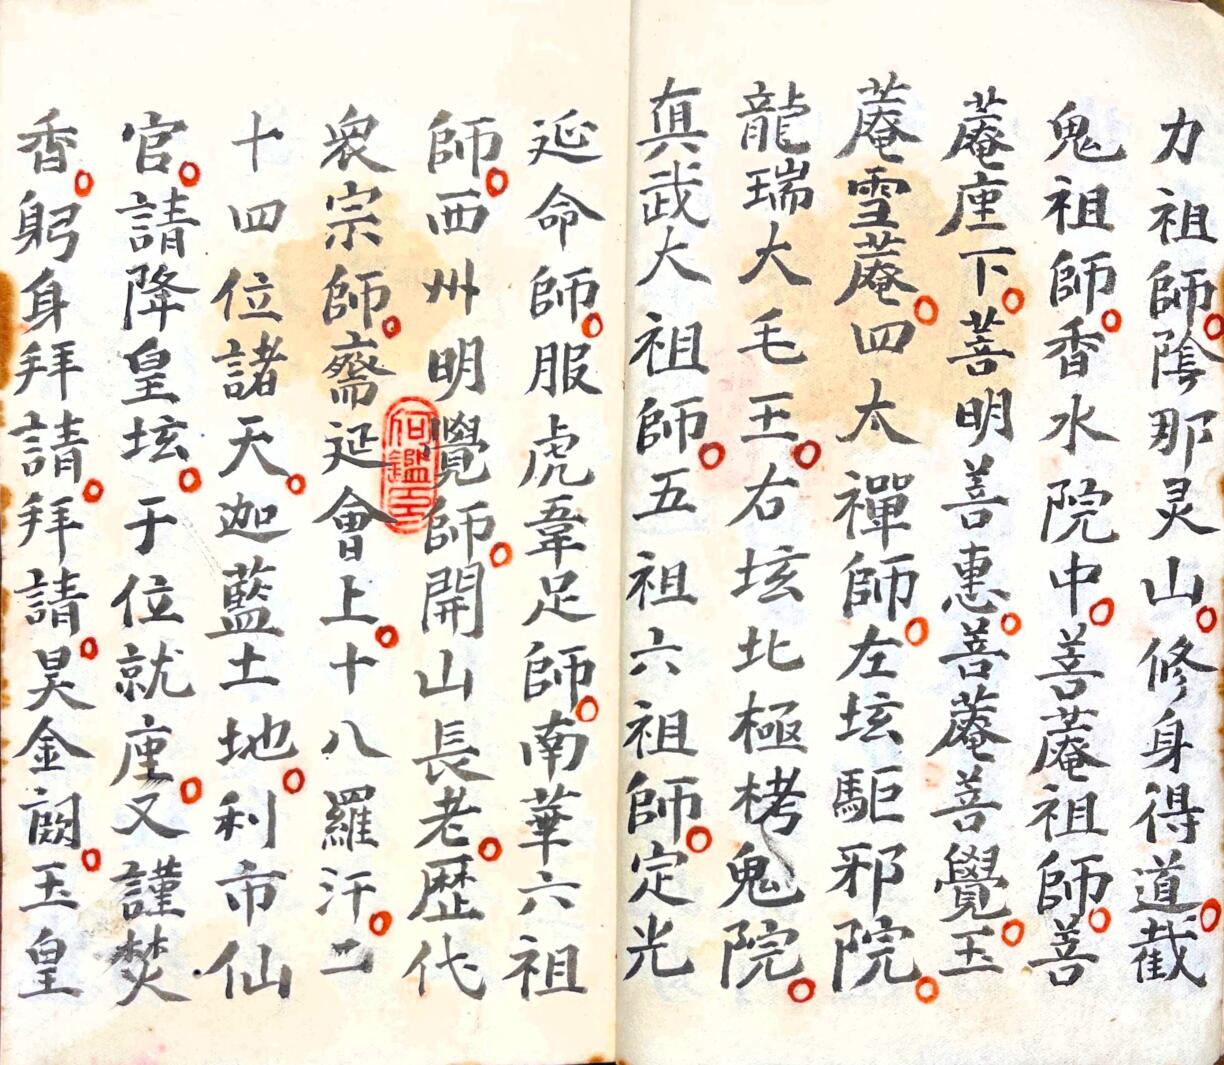 力祖師。陰那灵山。修身得道。截
鬼祖師。香水院中。善菴祖師。善
菴座下。善明善惠。善菴善覺。玉
菴雪菴。四太禪師。左坛驅邪院。
龍瑞大毛王。右坛北極栲鬼院。
真武大祖師。五祖六祖師。定光
延命師。服虎韋足師。南華六祖
師。西州明覺師。開山長老。歷代
衆宗師。齋延會上。十八羅汗。二
十四位諸天。迦藍土地。利市仙
官。請降皇坛。于位就座。又謹焚
香。躬身拜請。拜請。昊金闕。玉皇